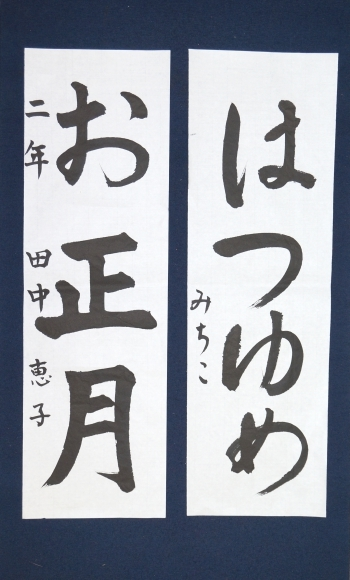 はつゆめ
みちこ
お正月
二年 田中 恵子